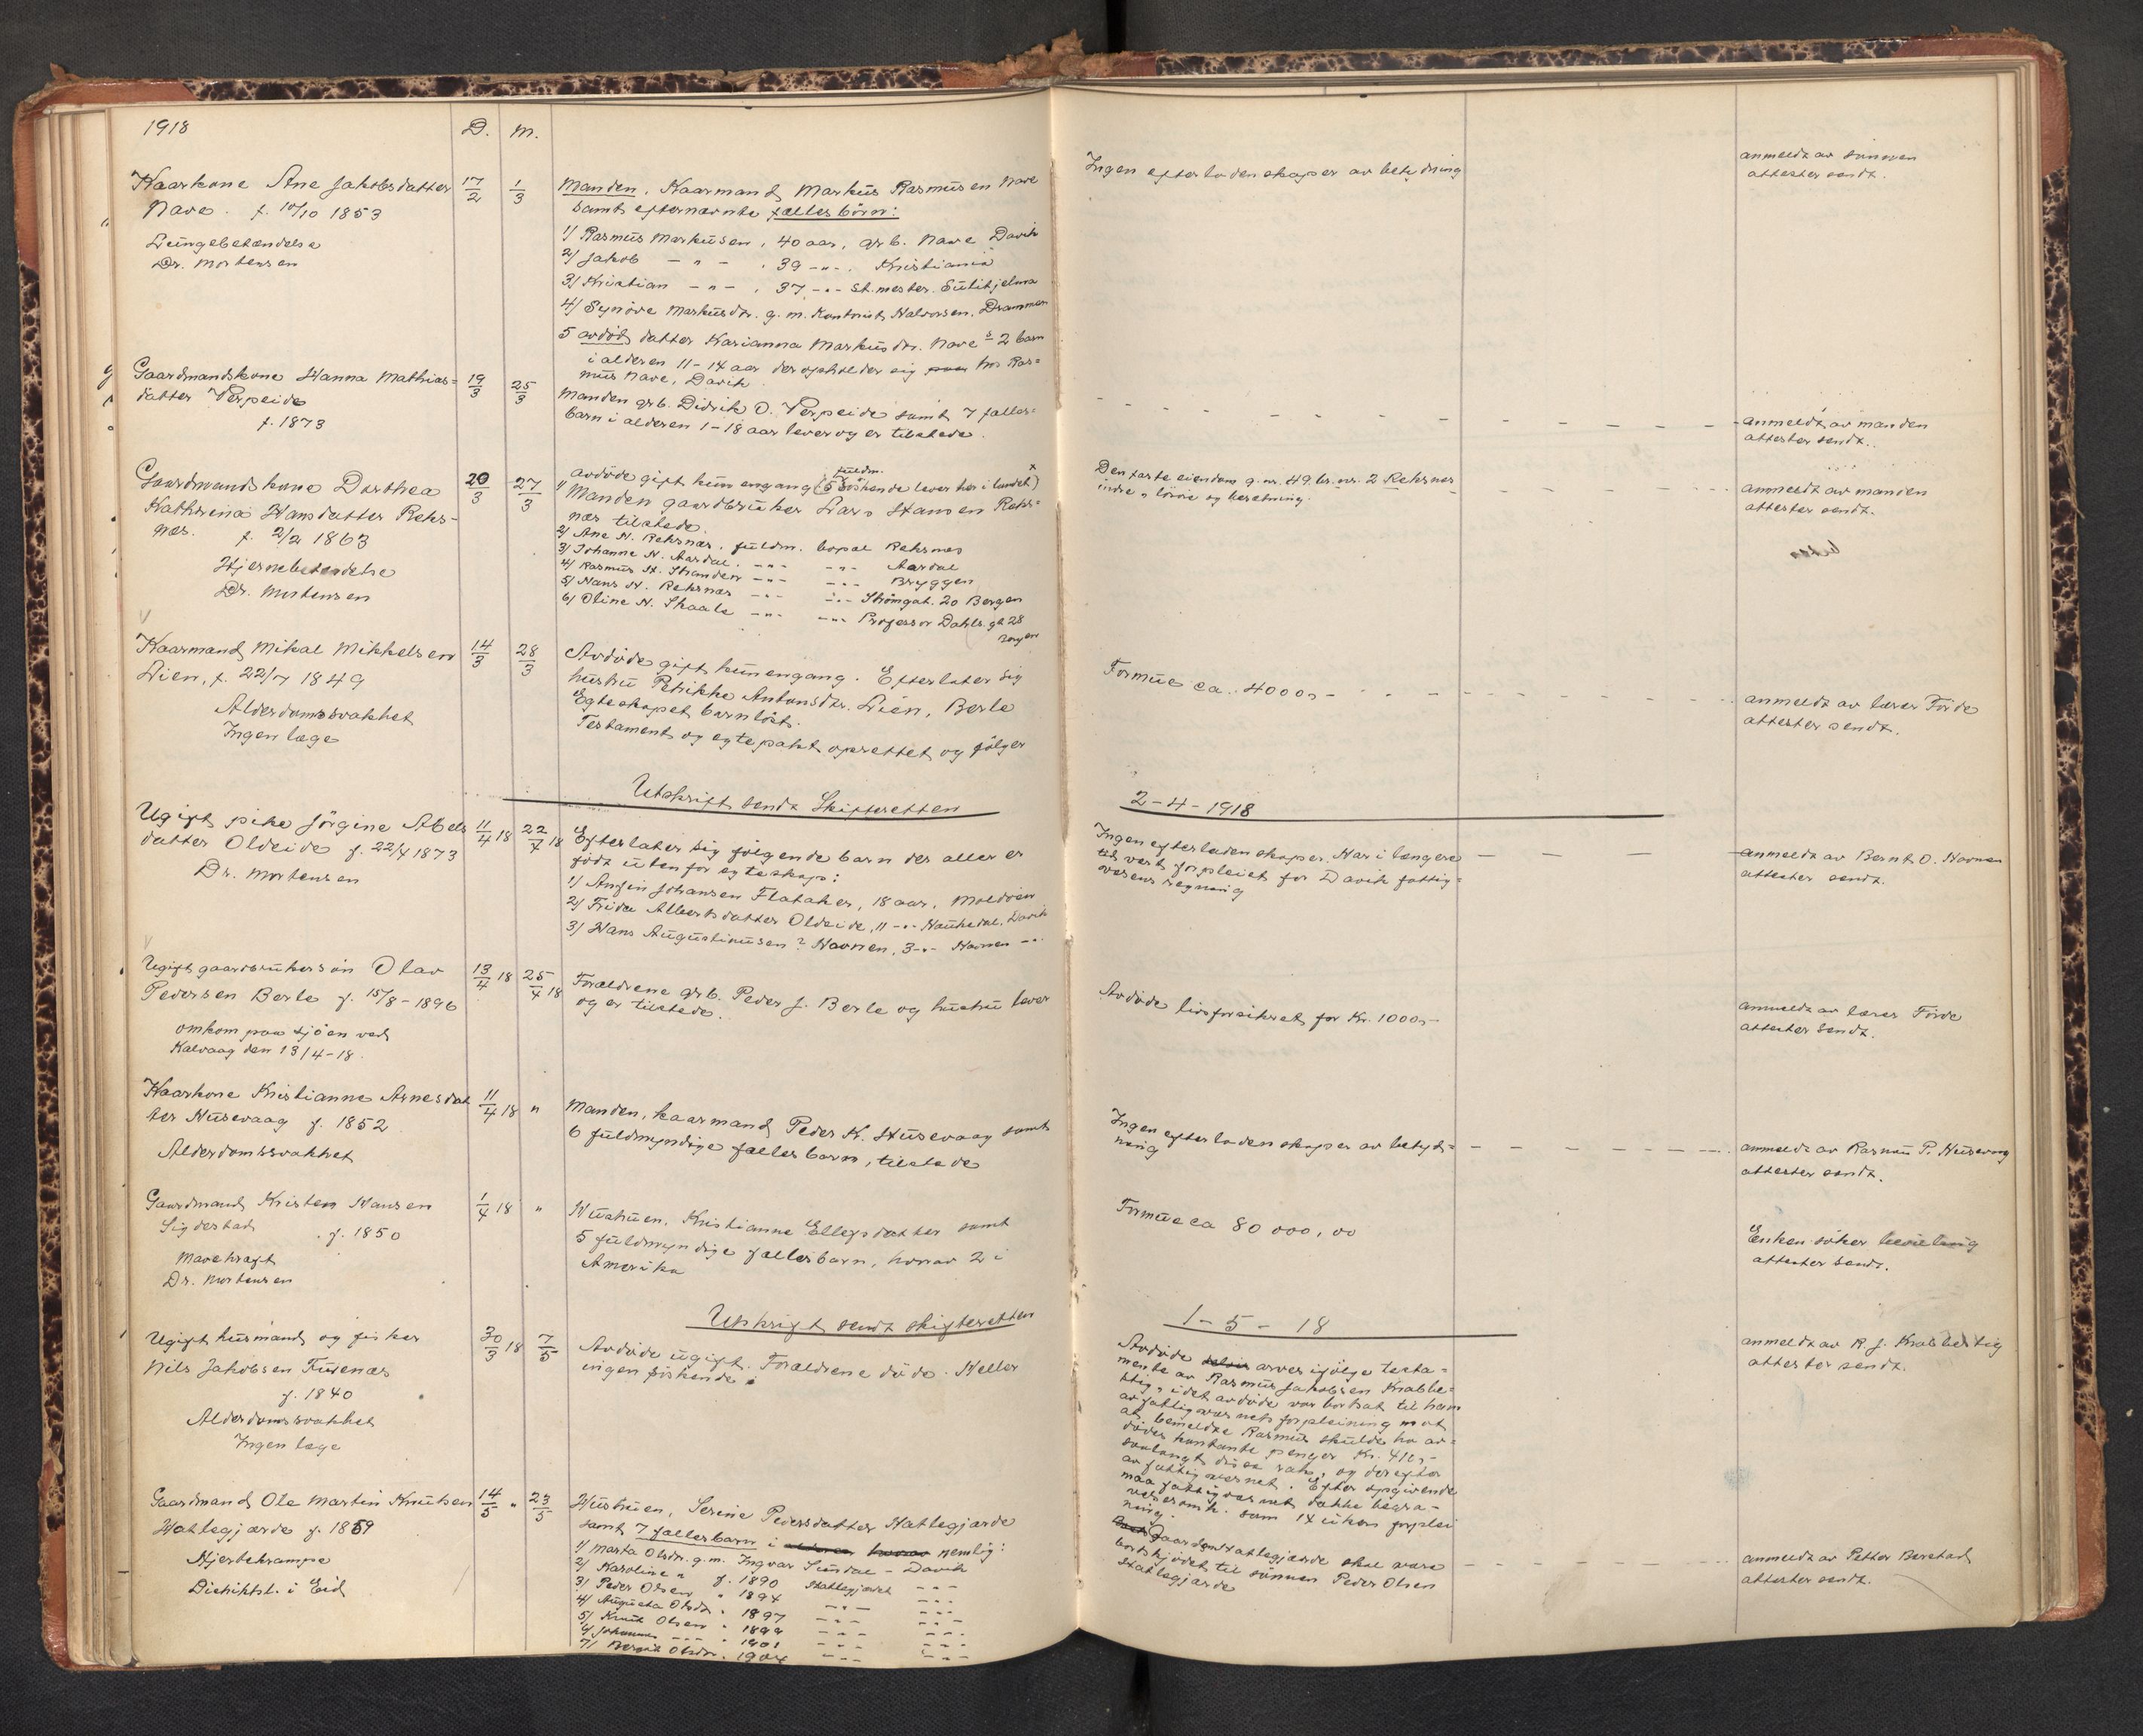 1918
D. M.
Kaarkone Ane Jakobsdatter
Nave. f. 10/10 1853
Lungebetændelse
Dr. Mortensen
17/2
1/3
Manden, Kaarmand Markus Rasmusen Nave
samt efternævnte fællesbörn:
1/ Rasmus Markusen, 40 aar, grb. Nave Davik
2/ Jakob - " - , 39 - " - . Kristiania
3/ Kristian - " - , 37 - " - st.mester. Sulitjelma
4/ Synöve Markusdtr. g. m. Kontorist Halvorsen, Drammen
5 avdöd datter Karianna Markusdtr. Nave s 2 barn
i alderen 11-14 aar der opholder sig hos Ras=
mus Nave, Davik
Ingen efterladenskaper av betydning
anmeldt av sönnen
attester sendt.
Gaardmandskone Hanna Mathias=
datter Verpeide
f. 1873
19/3
25/3
Manden grb. Didrik O. Verpeide samt 7 fælles=
barn i alderen 1-18 aar lever og er tilstede.
anmeldt av manden
attester sendt.
Gaardmandskone Dorthea
Kathrina Hansdatter Rehs-
næs. f. 2/2 1863
Hjernebetændelse
Dr. Mortensen
20/3
27/3
avdöde gift kun engang (5 fuldm. söskende lever her i landet) x
1/ Manden gaardbruker Lars Hansen Rehs=
næs tilstede.
2/ Ane H. Rehsnæs, fuldm. bopæl Rehsnæs
3/ Johanne H. Aardal. - " - - " - Aardal
4/ Rasmus H. Stranden - " - - " - Bryggen
5/ Hans H. Rehsnæs - " - - " - Strömgat. 20 Bergen
6/ Oline H. Skaale - " - - " - Professor Dahls. gt 28
Bergen
Den faste eiendom g. nr. 49 br. nr. 2 Rehsnæs
indre, lösöre og besetning.
anmeldt av manden
attester sendt.
Kaarmand Mikal Mikkelsen
Lien, f. 22/7 1849
Alderdomssvakhet
Ingen læge
14/3
28/3
Avdöde gift kun engang. Efterlater sig
hustru Petrikke Antonsdtr. Lien, Berle
Egteskapet barnlöst.
Testament og egtepakt oprettet og fölger
Formue ca. 4000,-
anmeldt av lærer Förde
attester sendt.
Utskrift sendt Skifteretten
2-4-1918
Ugift pike Jörgine Abels
datter Oldeide f. 22/4 1873
Dr. Mortensen
11/4 18
22/4 18
Efterlater sig fölgende barn der alle er
födt utenfor egteskap:
1) Anfin Johansen Flataker, 18 aar, Moldöen
2/ Frida Albertsdatter Oldeide, 11 - " - Haukedal, Davik
3/ Hans Augustinusen? Havnen, 3 - " - Havnen - " -
Ingen efterladenskaper. Har i længere
tid vært forpleiet for Davik fattig=
væsens regning
anmeldt av Bernt O. Havnen
attester sendt.
Ugift gaardbrukersön Olav
Pedersen Berle f. 15/8-1896
omkom paa sjöen ved
Kalvaag den 13/4-18.
13/4 18
25/4 18
Forældrene grb. Peder J. Berle og hustru lever
og er tilstede.
Avdöde livsforsikret for Kr. 1000,-
anmeldt av lærer Förde
attester sendt.
Kaarkone Kristianne Arnesdat
ter Husevaag f. 1852
Alderdomssvakhet
11/4 18 "
Manden, kaarmand Peder K. Husevaag samt
6 fuldmyndige fællesbarn, tilstede
Ingen efterladenskaper av betyd=
ning
anmeldt av Rasmus P. Husevaag
attester sendt.
Gaardmand Kristen Hansen
Sigdestad . f. 1850
Mavekræft
Dr. Mortensen
1/4 18 "
Hustruen, Kristianne Ellefsdatter samt
5 fuldmyndige fællesbarn, hvorav 2 i
Amerika
Formue ca 80 000,00
Enken söker bevilling
attester sendt.
Utskrift sendt skifteretten
1-5-18
Ugift husmand og fisker
Nils Jakobsen Furenæs
f. 1840
Alderdomssvakhet
Ingen læge
30/3 18
7/5
Avdöde ugift. Forældrene döde. Heller
ingen söskende
Avdöde arves ifölge testa=
mente av Rasmus Jakobsen Knabbe=
stig, idet avdöde var bortsat til ham
av fattigvæsnets forpleining mot
at bemeldte Rasmus skulde ha av=
dödes kontante penger Kr. 410,-
saalangt disse rak, og derefter
av fattigvæsnet. Efter opgivende
maa fattigvæsnet dække begra-
velsesomk. samt 14 ukers forplei
ning.
anmeldt av R. J. Knabbestig
attester sendt.
Gaardmand Ole Martin Knutsen
Hatlegjærde f. 1859
Hjertekrampe
Distriktsl. i Eid
14/5 "
23/5
Hustruen, Serine Pedersdatter Hatlegjærde
samt 7 fællesbarn i nemlig:
1/ Marta Olsdtr. g. m. Ingvar Sundal - Davik
2/ Karoline " f. 1890 Hatlegjærdet - - -
3/ Peder Olsen " 1894 - " - - - -
4/ Augusta Olsdtr " 1897 - - - - - -
5/ Knut Olsen " 1899 - - - - - -
6/ Johannes - - - " 1901 - - - - - -
7/ Olsdtr. " 1904 - - - - - -
Gaarden Hatlegjærde skal være
bortskjödet til sönnen Peder Olsen
Hatlegjærde
anmeldt av Petter Berstad
attester sendt.